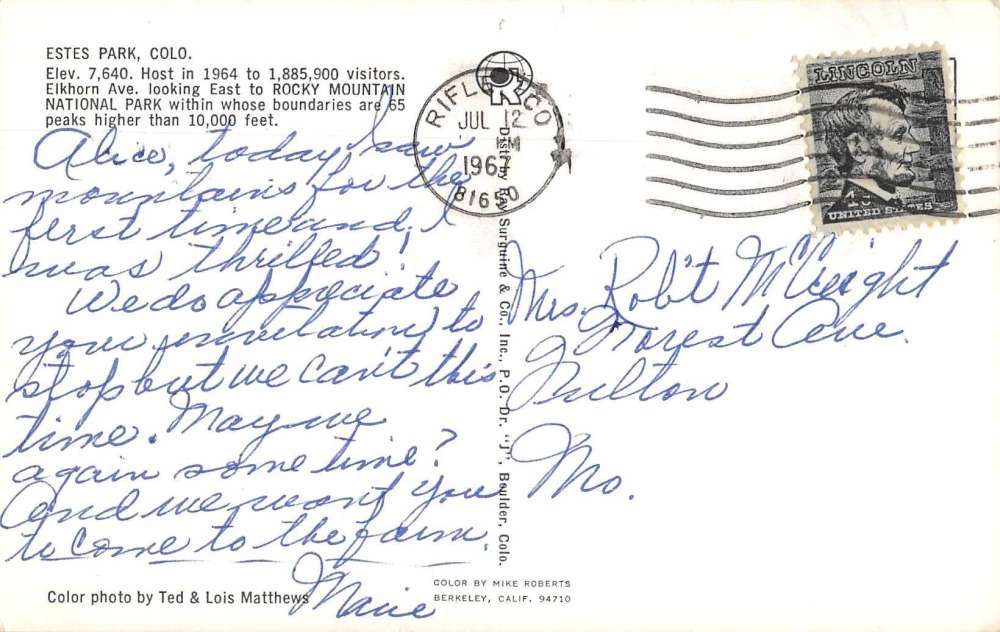 ESTES PARK, COLO.
Elev. 7,640. Host in 1964 to 1,885,900 visitors.
Elkhorn Ave. looking East to ROCKY MOUNTAIN
NATIONAL PARK within whose boundaries are 65
peaks higher than 10,000 feet.
Alice, today I saw
mountains for the
first time and I
was thrilled!
We do appreciate
your invitation to
stop but we can't this
time. May we
again some time?
And we want you
to come to the farm.
Marie
Color photo by Ted & Lois Matthews
Dist. by Ray Surguine & Co., Inc., P.O. Dr. "J", Boulder, Colo.
COLOR BY MIKE ROBERTS
BERKELEY, CALIF. 94710
R
RIFLE CO
JUL 12
PM
1967
81650
LINCOLN
UNITED STATES
Mrs. Rob't McCreight
Forest Ave.
Fulton
Mo.